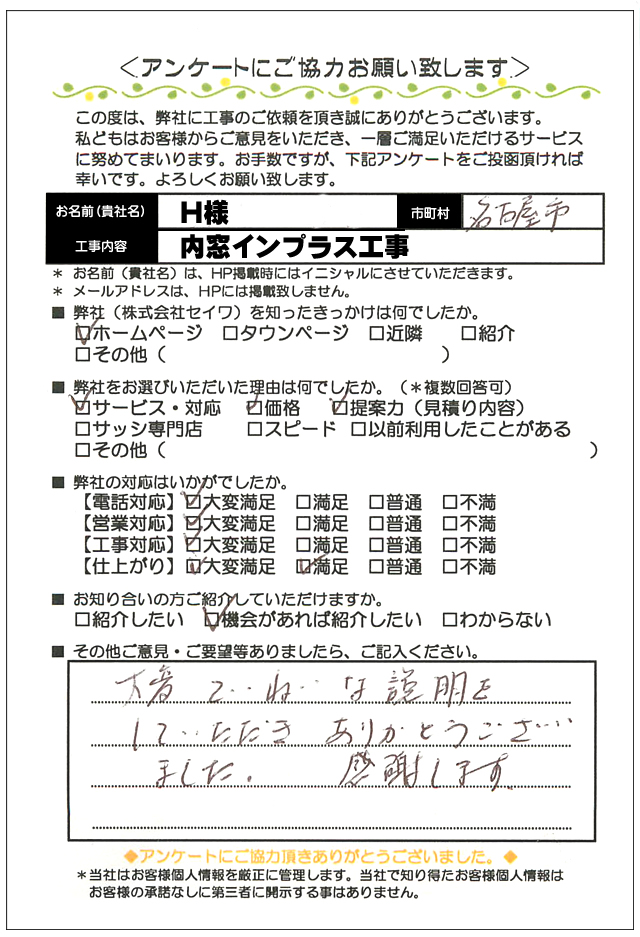 ＜アンケートにご協力お願い致します＞
この度は、弊社に工事のご依頼を頂き誠にありがとうございます。
私どもはお客様からご意見をいただき、一層ご満足いただけるサービス
に努めてまいります。お手数ですが、下記アンケートをご投函頂ければ
幸いです。よろしくお願い致します。
お名前（貴社名） H様 市町村 名古屋市
工事内容 内窓インプラス工事
＊ お名前（貴社名）は、HP掲載時にはイニシャルにさせていただきます。
＊ メールアドレスは、HPには掲載致しません。
■ 弊社（株式会社セイワ）を知ったきっかけは何でしたか。
☑ホームページ □タウンページ □近隣 □紹介
□その他（ ）
■ 弊社をお選びいただいた理由は何でしたか。（＊複数回答可）
☑サービス・対応 ☑価格 ☑提案力（見積り内容）
□サッシ専門店 □スピード □以前利用したことがある
□その他（ ）
■ 弊社の対応はいかがでしたか。
【電話対応】☑大変満足 □満足 □普通 □不満
【営業対応】☑大変満足 □満足 □普通 □不満
【工事対応】☑大変満足 □満足 □普通 □不満
【仕上がり】☑大変満足 ☑満足 □普通 □不満
■ お知り合いの方ご紹介していただけますか。
□紹介したい ☑機会があれば紹介したい □わからない
■ その他ご意見・ご要望等ありましたら、ご記入ください。
大変ていねいな説明を
していただき ありがとうござい
ました。 感謝します
◆アンケートにご協力頂きありがとうございました。◆
＊当社はお客様個人情報を厳正に管理します。当社で知り得たお客様個人情報は
お客様の承諾なしに第三者に開示する事はありません。